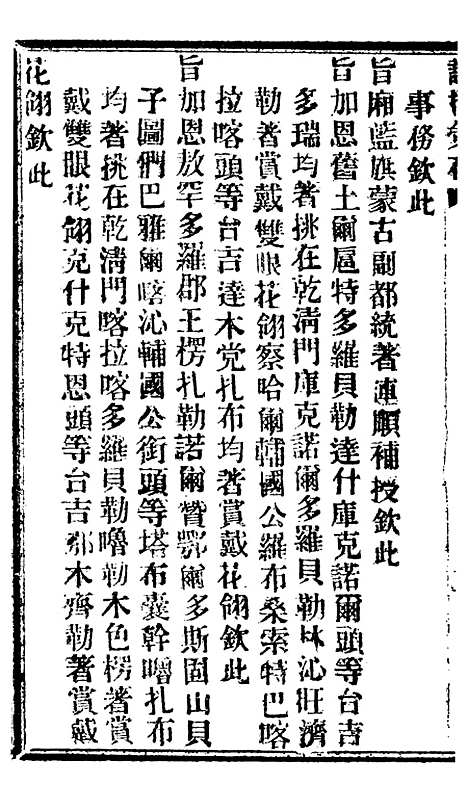 事務欽此
旨廂藍旗蒙古副都統著連順補授欽此
旨加恩舊土爾扈特多羅貝勒達什庫克諾爾頭等台吉
多瑞均著挑在乾淸門庫克諾爾多羅貝勒林沁旺濟
勒著賞戴雙眼花翎察哈爾輔國公羅布桑索特巴喀
拉喀頭等台吉達木党扎布均著賞戴花翎欽此
旨加恩敖罕多羅郡王楞扎勒諾爾贊鄂爾多斯固山貝
子圖們巴雅爾喀沁輔國公銜頭等塔布囊幹嚕扎布
均著挑在乾淸門喀拉喀多羅貝勒嚕勒木色楞著賞
戴雙眼花翎克什克特恩頭等台吉鄂木齊勒著賞戴
花翎欽此